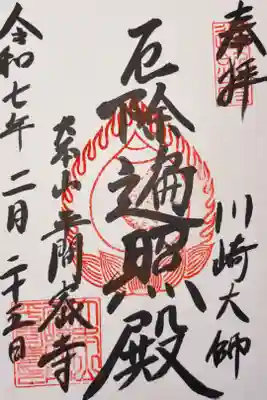 奉拝
川崎大師
厄除遍照殿
大本山平間寺
令和七年二月二十五日